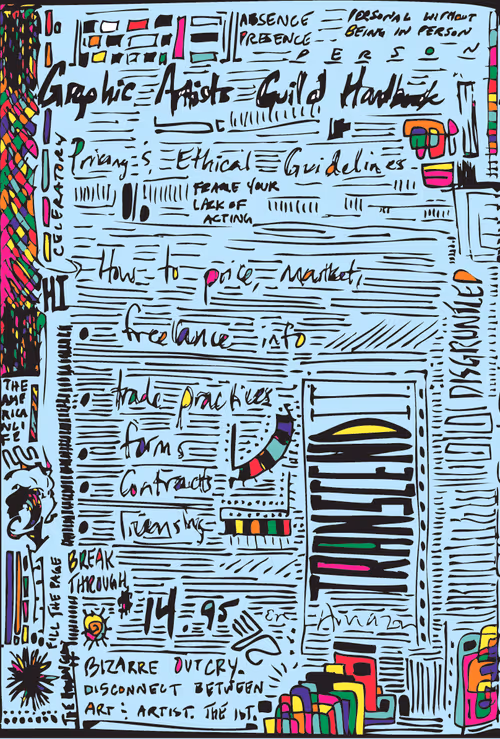 ABSENCE
PRESENCE
PERSONAL WITHOUT
BEING IN PERSON
PERSON
Graphic Artists Guild Handbook
Pricing & Ethical Guidelines
FRAME YOUR
LACK OF
ACTING
CELERATORY
HI
How to price, market,
freelance info
trade practices
forms
Contracts
Licensing
DISGRUNTLED
TRANSCEND IT
THE
AME
RICA
N LI
FE
FILL THE PAGE
BREAK
THROUGH
$14.95 on Amazon
BIZARRE OUTCRY.
DISCONNECT BETWEEN
ART: ARTIST. THE 1ST.